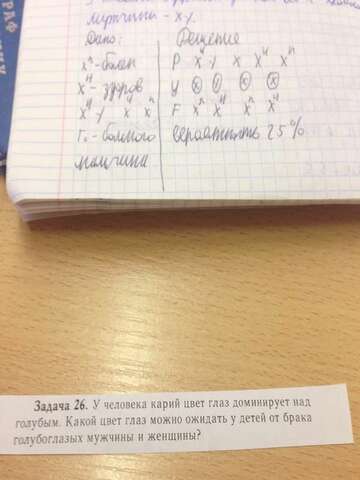 мужчины - ху.
Дано:
Решение
xʰ - болен
P xᴴ y x xᴴ xʰ
xᴴ - здоров
xᴴ y xᴴ xʰ
F xʰ xᴴ xʰ xᴴ
Г. - больного
вероятность 25%
мальчика
Задача 26. У человека карий цвет глаз доминирует над
голубым. Какой цвет глаз можно ожидать у детей от брака
голубоглазых мужчины и женщины?